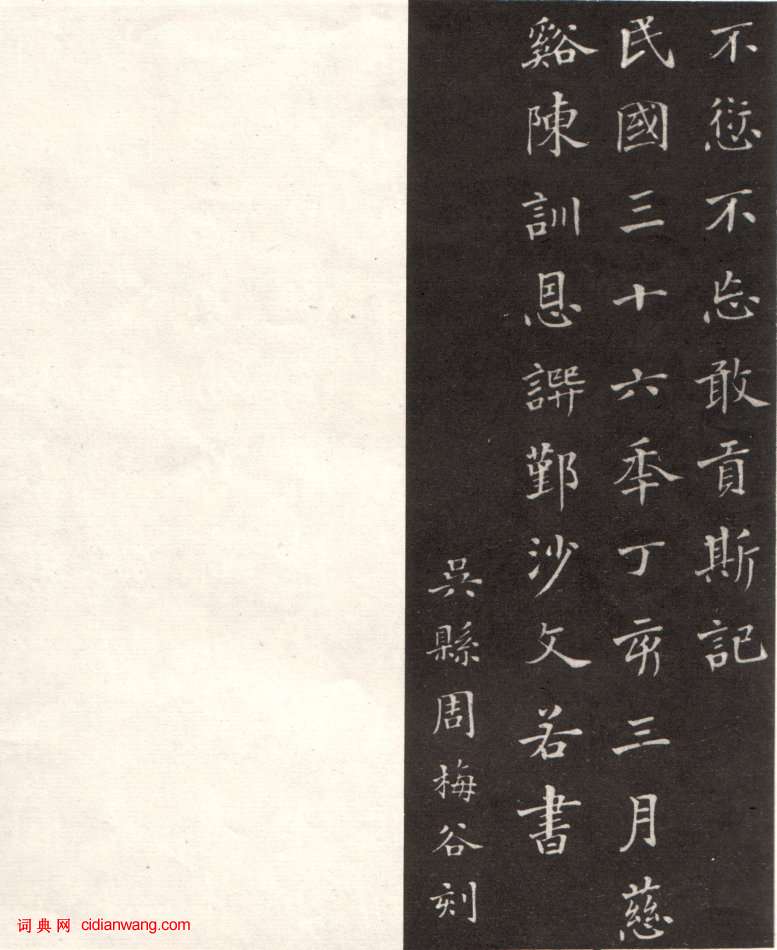 不愆不忘敢貢斯記
民國三十六季丁亥三月慈
谿陳訓恩譔鄞沙文若書
吳縣周梅谷刻
词典网 cidianwang.com